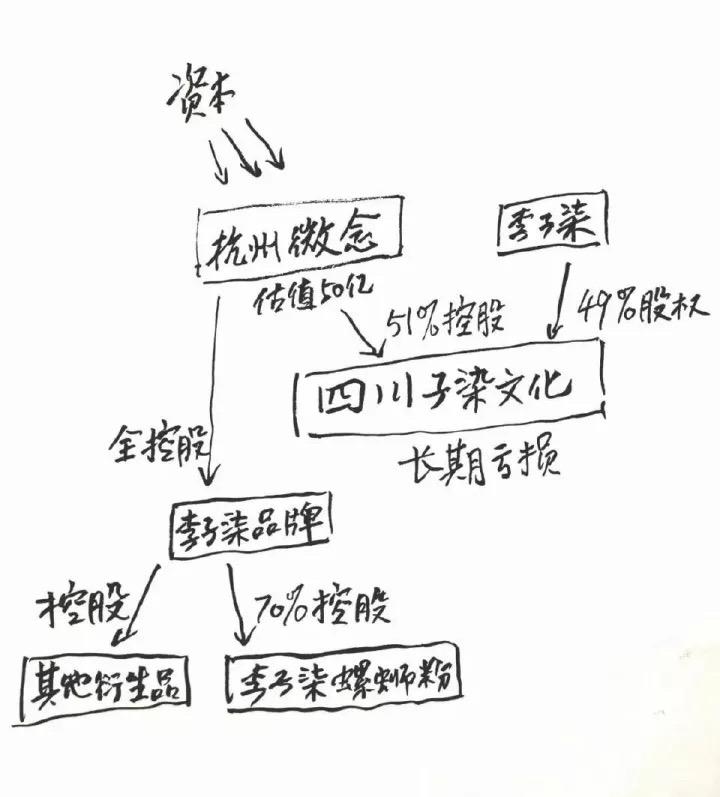 资本
杭州微念
李子柒
估值50亿
51%控股
49%股权
四川子染文化
长期亏损
全控股
李子柒品牌
控股
70%控股
其他衍生品
李子柒螺蛳粉